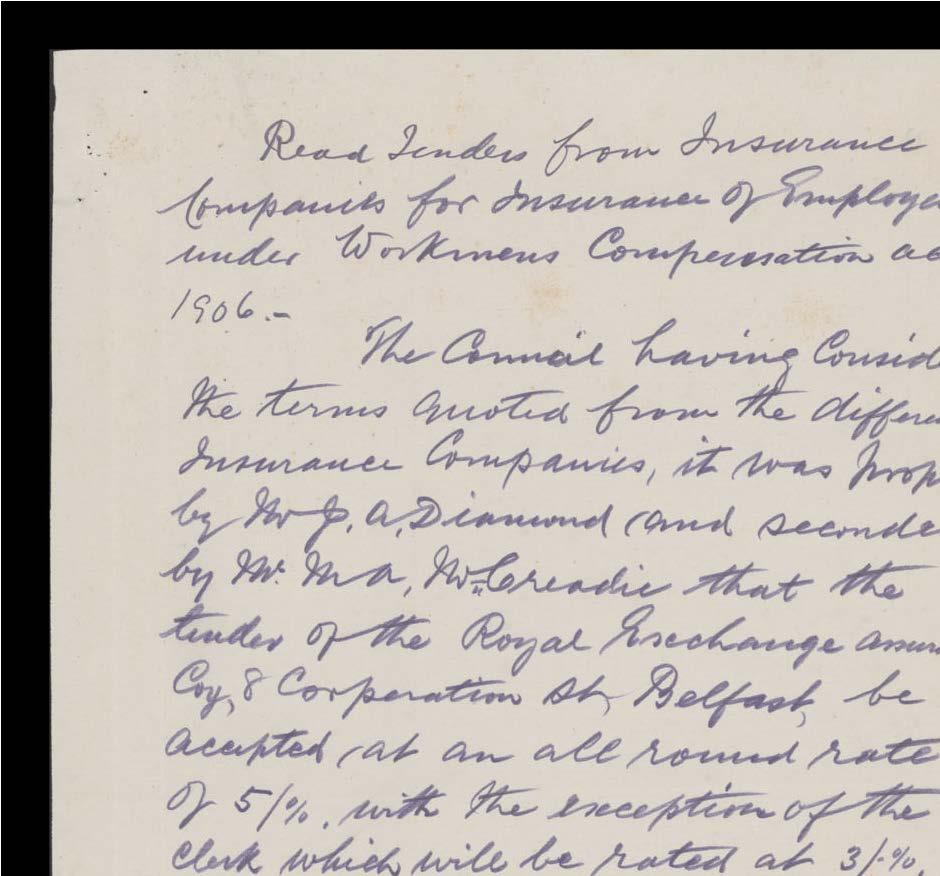 Read Tenders from Insurance
Companies for Insurance of Employe
under Workmens Compensation ac
1906.-
The Council having Consid
the terms quoted from the differe
Insurance Companies, it was prop
by Mr J. A. Diamond and seconde
by Mr. M A, McCreadie that the
tender of the Royal Exchange assur
Coy, 8 Corporation St, Belfast, be
accepted, at an all round rate
of 5/%, with the exception of the
Clerk which will be rated at 3/-%,